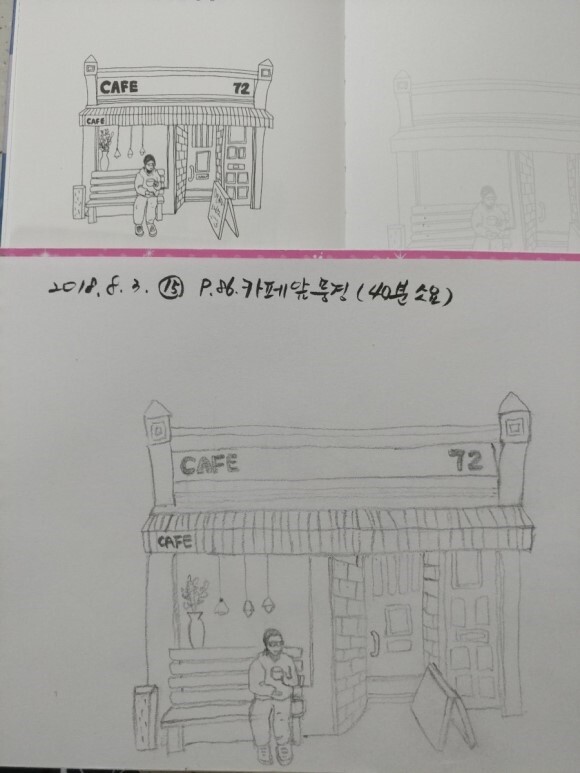 CAFE 72
CAFE
2018. 8. 3. ⑮ P.86. 카페 앞 풍경 (40분 소요)
CAFE 72
CAFE